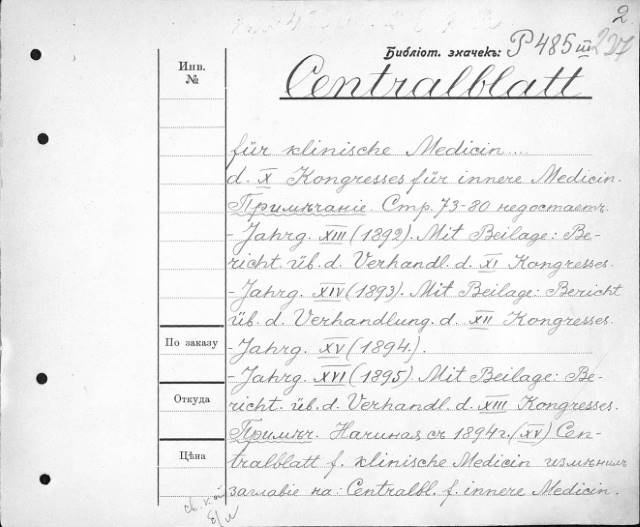 2
Библіот. значекъ: P 485 III 227
Инв. №
Centralblatt
für klinische Medicin....
d. X Kongresses für innere Medicin.
Примѣчаніе. Стр. 73-80 недостаетъ.
- Jahrg. XIII (1892). Mit Beilage: Be-
richt. üb. d. Verhandl. d. XI Kongresses.
- Jahrg. XIV (1893). Mit Beilage: Bericht
üb. d. Verhandlung. d. XII Kongresses.
По заказу
- Jahrg. XV (1894.).
- Jahrg. XVI (1895). Mit Beilage: Be-
Откуда
richt. üb. d. Verhandl. d. XIII Kongresses.
Примѣч. Начиная съ 1894 г. (XV) Cen-
Цѣна
tralblatt f. klinische Medicin измѣнилъ
заглавіе на: Centralbl. f. innere Medicin.